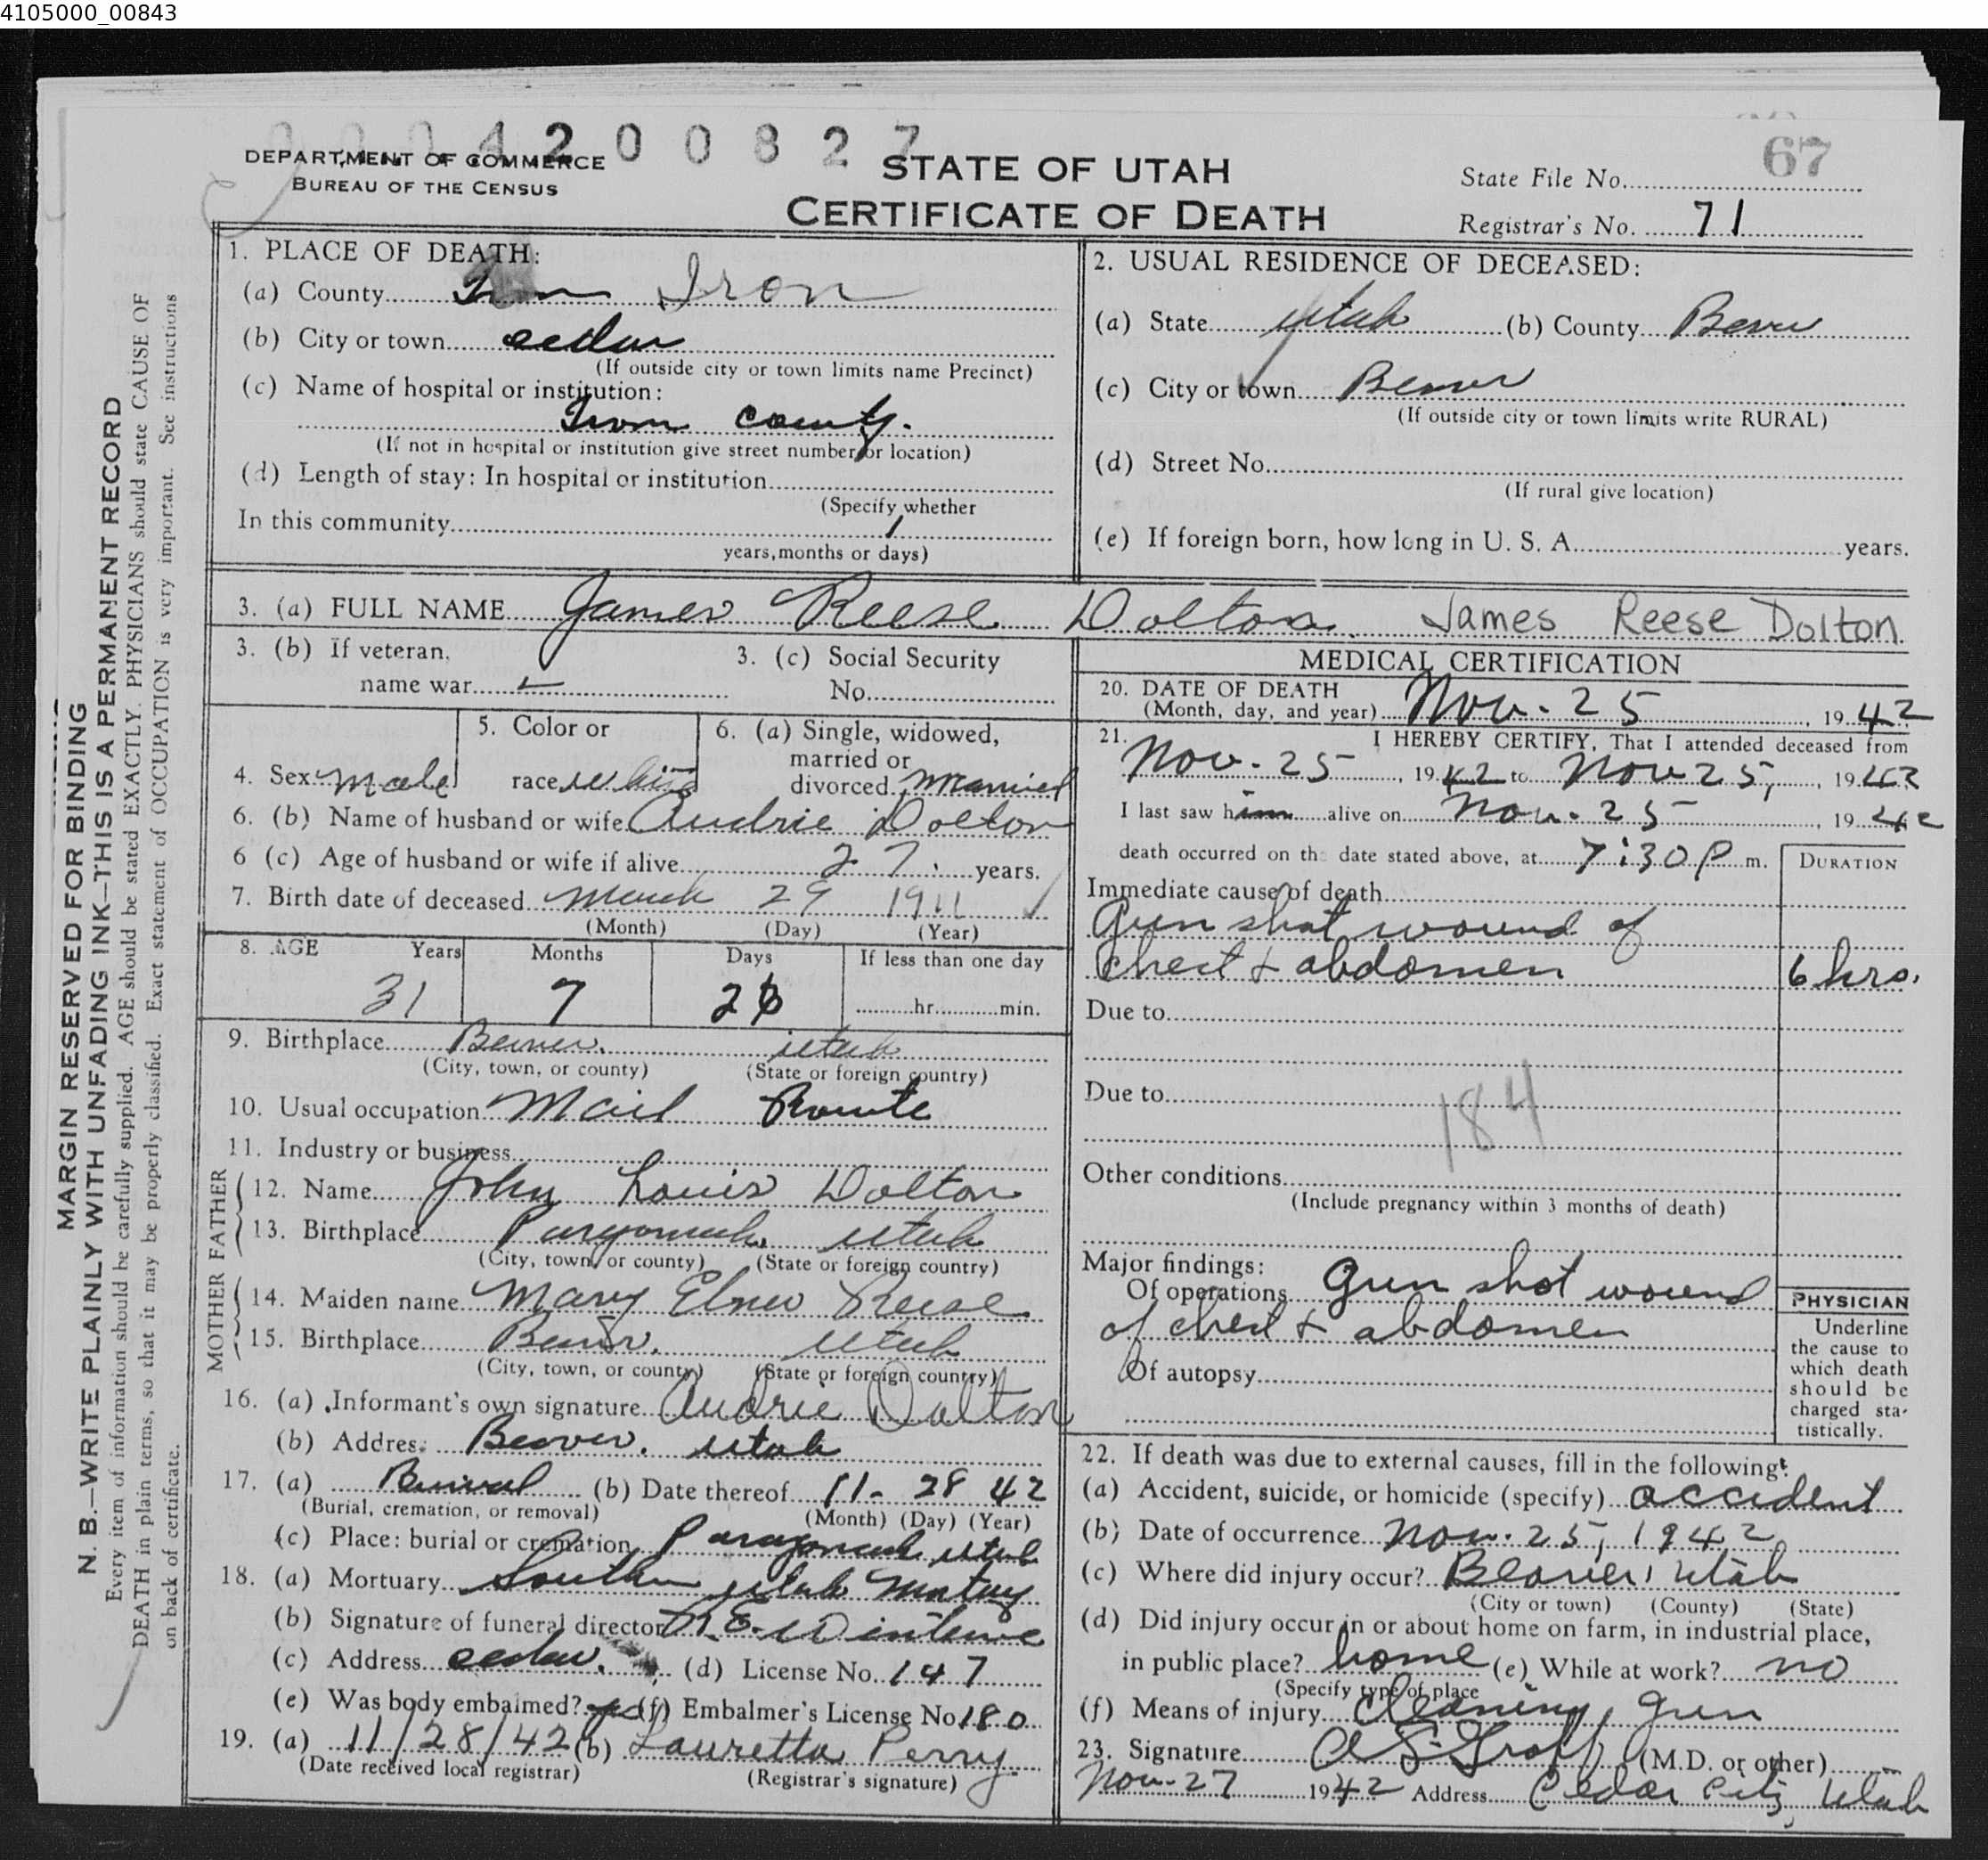 4105000_00843
0004200827
DEPARTMENT OF COMMERCE
BUREAU OF THE CENSUS
STATE OF UTAH
CERTIFICATE OF DEATH
State File No. 67
Registrar's No. 71
MARGIN RESERVED FOR BINDING
N. B.—WRITE PLAINLY WITH UNFADING INK—THIS IS A PERMANENT RECORD
Every item of information should be carefully supplied. AGE should be stated EXACTLY. PHYSICIANS should state CAUSE OF
DEATH in plain terms, so that it may be properly classified. Exact statement of OCCUPATION is very important. See instructions
on back of certificate.
1. PLACE OF DEATH:
(a) County Iron Iron
(b) City or town cedar
(If outside city or town limits name Precinct)
(c) Name of hospital or institution:
Iron county.
(If not in hospital or institution give street number or location)
(d) Length of stay: In hospital or institution
(Specify whether
In this community
years, months or days)
2. USUAL RESIDENCE OF DECEASED:
(a) State Utah (b) County Beaver
(c) City or town Beaver
(If outside city or town limits write RURAL)
(d) Street No.
(If rural give location)
(e) If foreign born, how long in U. S. A. years.
3. (a) FULL NAME James Reese Dolton James Reese Dolton
3. (b) If veteran,
name war
3. (c) Social Security
No.
4. Sex Male
5. Color or
race white
6. (a) Single, widowed,
married or
divorced Married
6. (b) Name of husband or wife Audrie Dolton
6 (c) Age of husband or wife if alive 27 years.
7. Birth date of deceased March 29 1911
(Month) (Day) (Year)
8. AGE Years Months Days If less than one day
31 7 26 hr. min.
9. Birthplace Beaver. Utah
(City, town, or county) (State or foreign country)
10. Usual occupation Mail Route
11. Industry or business
FATHER
12. Name John Louis Dolton
13. Birthplace Paragonah, Utah
(City, town, or county) (State or foreign country)
MOTHER
14. Maiden name Mary Reese
15. Birthplace Beaver. Utah
(City, town, or county) (State or foreign country)
16. (a) Informant's own signature Audrie Dalton
(b) Address Beaver. Utah
17. (a) Burial (b) Date thereof 11- 28 42
(Burial, cremation, or removal) (Month) (Day) (Year)
(c) Place: burial or cremation Paragonah Utah
18. (a) Mortuary Southern Utah Mortuary
(b) Signature of funeral director
(c) Address cedar. (d) License No. 147
(e) Was body embalmed? yes (f) Embalmer's License No. 180
19. (a) 11/28/42 (b) Lauretta Perry
(Date received local registrar) (Registrar's signature)
MEDICAL CERTIFICATION
20. DATE OF DEATH
(Month, day, and year) Nov. 25, 1942
21. I HEREBY CERTIFY, That I attended deceased from
Nov. 25, 1942 to Nov 25, 1942
I last saw him alive on Nov. 25, 1942
death occurred on the date stated above, at 7:30 P m.
DURATION
Immediate cause of death
Gun shot wound of
chest & abdomen 6 hrs.
Due to
Due to
184
Other conditions
(Include pregnancy within 3 months of death)
Major findings:
Of operations Gun shot wound
of chest & abdomen
Of autopsy
PHYSICIAN
Underline
the cause to
which death
should be
charged sta-
tistically.
22. If death was due to external causes, fill in the following:
(a) Accident, suicide, or homicide (specify) accident
(b) Date of occurrence Nov. 25, 1942
(c) Where did injury occur? Beaver, Utah
(City or town) (County) (State)
(d) Did injury occur in or about home on farm, in industrial place,
in public place? home (e) While at work? no
(Specify type of place
(f) Means of injury Cleaning gun
23. Signature (M.D. or other)
Nov. 27 1942 Address Cedar City, Utah